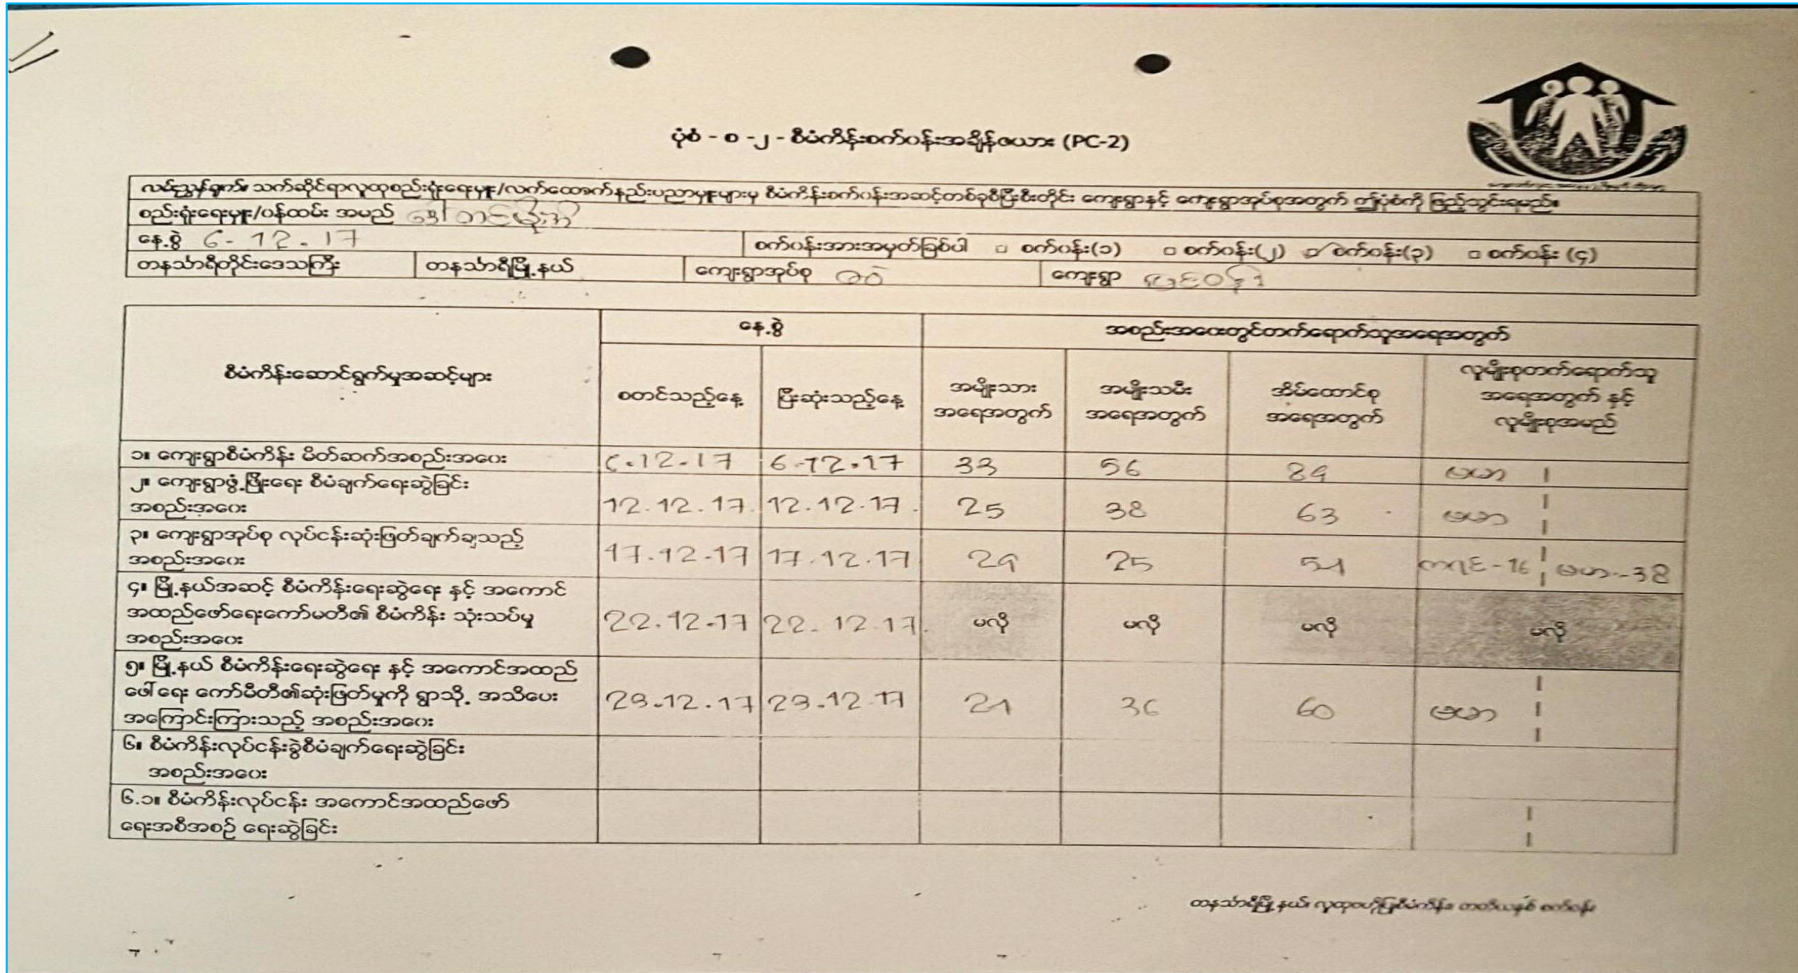 ပုံစံ - စ -၂ - စီမံကိန်းစက်ဝန်းအချိန်ဇယား (PC-2)
လမ်းညွှန်ချက်။ သက်ဆိုင်ရာလူထုစည်းရုံးရေးမှူး/လက်ထောက်နည်းပညာမှူးများမှ စီမံကိန်းစက်ဝန်းအဆင့်တစ်ခုစီပြီးစီးတိုင်း ကျေးရွာနှင့် ကျေးရွာအုပ်စုအတွက် ဤပုံစံကို ဖြည့်သွင်းရမည်။
စည်းရုံးရေးမှူး/ဝန်ထမ်း အမည်
နေ့စွဲ 6-12.17 စက်ဝန်းအားအမှတ်ခြစ်ပါ □ စက်ဝန်း(၁) □ စက်ဝန်း(၂) ☑ စက်ဝန်း(၃) □ စက်ဝန်း (၄)
တနင်္သာရီတိုင်းဒေသကြီး တနင်္သာရီမြို့နယ် ကျေးရွာအုပ်စု ကျေးရွာ
နေ့စွဲ အစည်းအဝေးတွင်တက်ရောက်သူအရေအတွက်
စီမံကိန်းဆောင်ရွက်မှုအဆင့်များ စတင်သည့်နေ့ ပြီးဆုံးသည့်နေ့
အမျိုးသား
အရေအတွက်
အမျိုးသမီး
အရေအတွက်
အိမ်ထောင်စု
အရေအတွက်
လူမျိုးစုတက်ရောက်သူ
အရေအတွက် နှင့်
လူမျိုးစုအမည်
၁။ ကျေးရွာစီမံကိန်း မိတ်ဆက်အစည်းအဝေး 6.12.17 6-12.17 33 56 89 ဗမာ
၂။ ကျေးရွာဖွံ့ဖြိုးရေး စီမံချက်ရေးဆွဲခြင်း
အစည်းအဝေး 12.12.17. 12.12.17. 25 38 63 ဗမာ
၃။ ကျေးရွာအုပ်စု လုပ်ငန်းဆုံးဖြတ်ချက်ချသည့်
အစည်းအဝေး 17.12.17 17.12.17 29 25 54 ကရင်-16 ဗမာ-38
၄။ မြို့နယ်အဆင့် စီမံကိန်းရေးဆွဲရေး နှင့် အကောင်
အထည်ဖော်ရေးကော်မတီ၏ စီမံကိန်း သုံးသပ်မှု
အစည်းအဝေး 22.12.17 22.12.17. မလို မလို မလို မလို
၅။ မြို့နယ် စီမံကိန်းရေးဆွဲရေး နှင့် အကောင်အထည်
ဖေါ်ရေး ကော်မီတီ၏ဆုံးဖြတ်မှုကို ရွာသို့ အသိပေး
အကြောင်းကြားသည့် အစည်းအဝေး 29.12.17 29.12.17 24 36 60 ဗမာ
၆။ စီမံကိန်းလုပ်ငန်းခွဲစီမံချက်ရေးဆွဲခြင်း
အစည်းအဝေး
၆.၁။ စီမံကိန်းလုပ်ငန်း အကောင်အထည်ဖော်
ရေးအစီအစဉ် ရေးဆွဲခြင်း
တနင်္သာရီမြို့နယ်၊ လူထုဗဟိုပြုစီမံကိန်း၊ တတိယနှစ် စက်ဝန်း